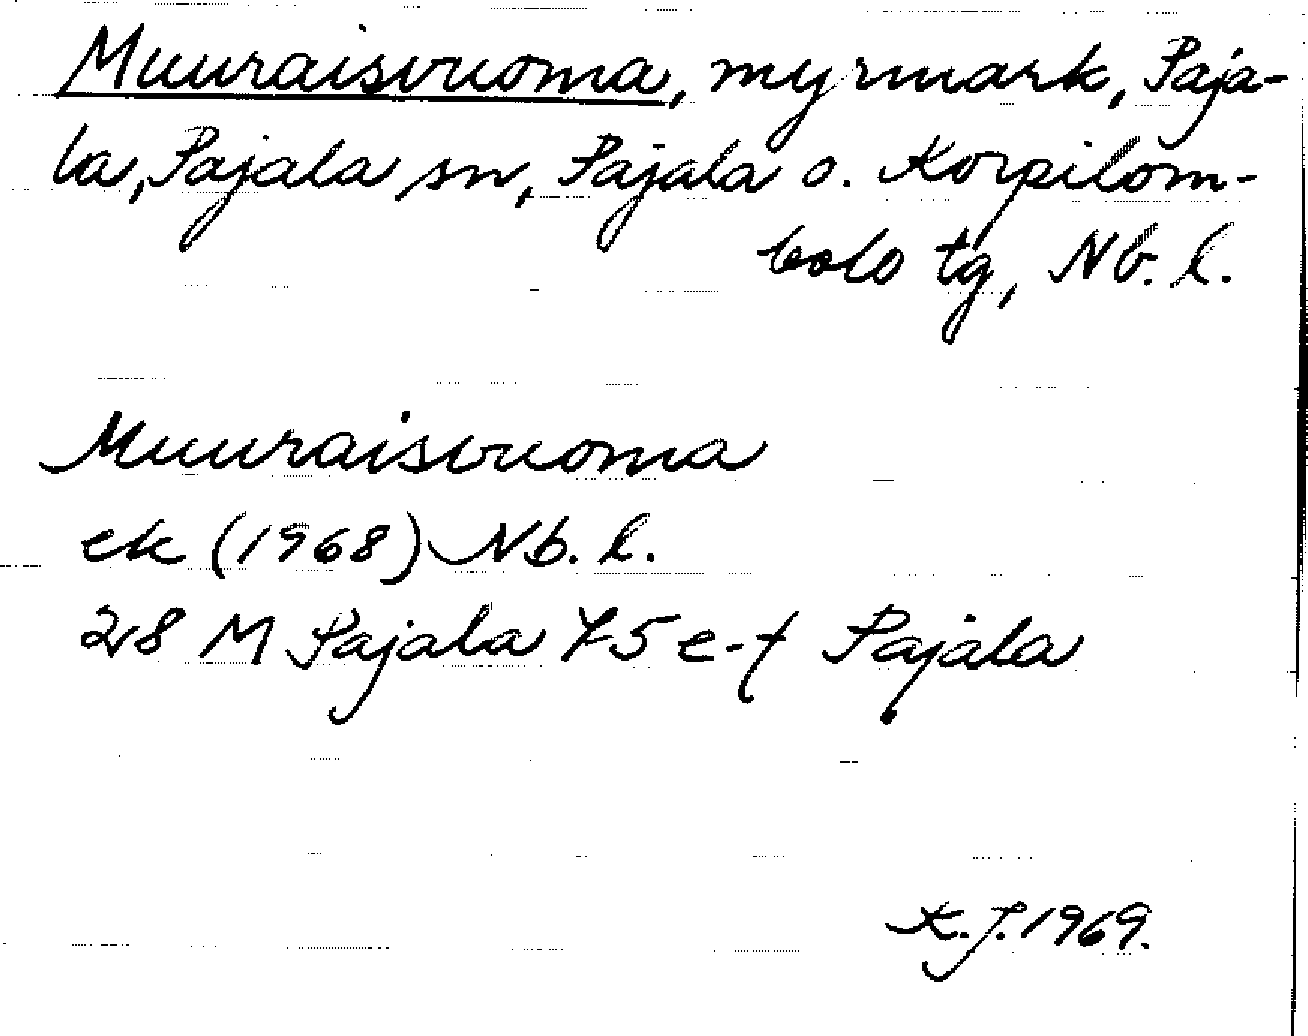 Muuraisvuoma, myrmark, Paja-
la, Pajala sn, Pajala o. Korpilom-
bolo tg, Nb. l.
Muuraisvuoma
ek (1968) Nb. l.
28 M Pajala 75 e-f Pajala
K.J. 1969.